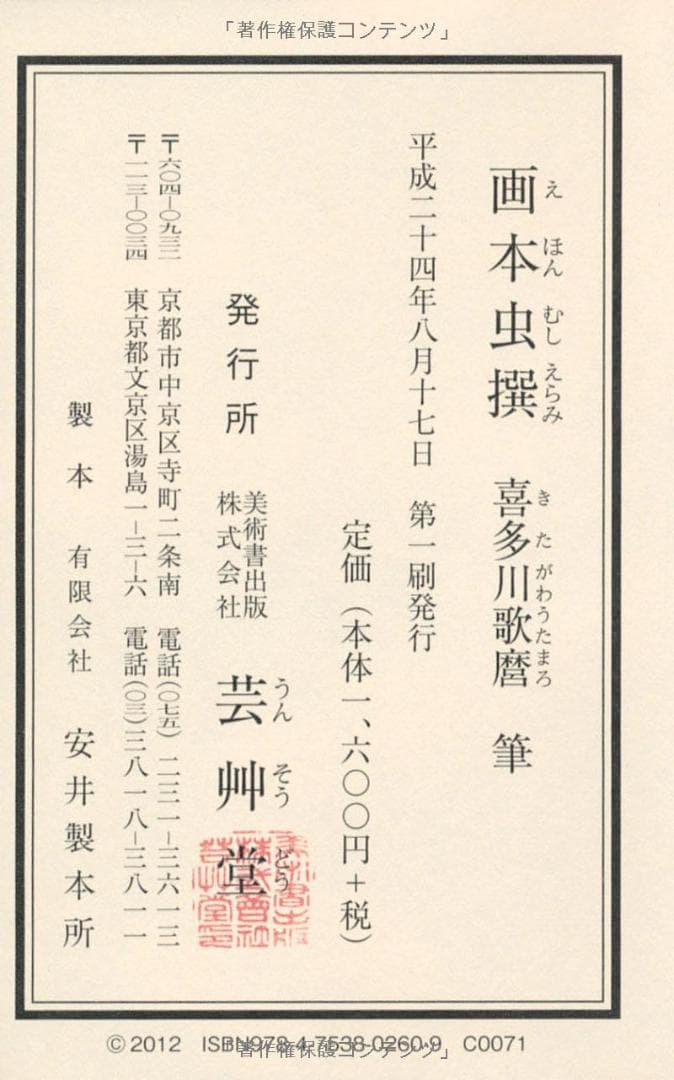 「著作権保護コンテンツ」
画本虫撰 喜多川歌麿 筆
えほんむしえらみ きたがわうたまろ
平成二十四年八月十七日 第一刷発行
定価(本体一、六〇〇円+税)
発行所 美術書出版
株式会社
芸艸堂
うんそうどう
〒六〇四-〇九三二 京都市中京区寺町二条南 電話(〇七五)二三一-三六一三
〒一一三-〇〇三四 東京都文京区湯島一-三-六 電話(〇三)三八一八-三八一一
製本 有限会社 安井製本所
©2012 ISBN978-4-7538-0260-9 C0071
「著作権保護コンテンツ」